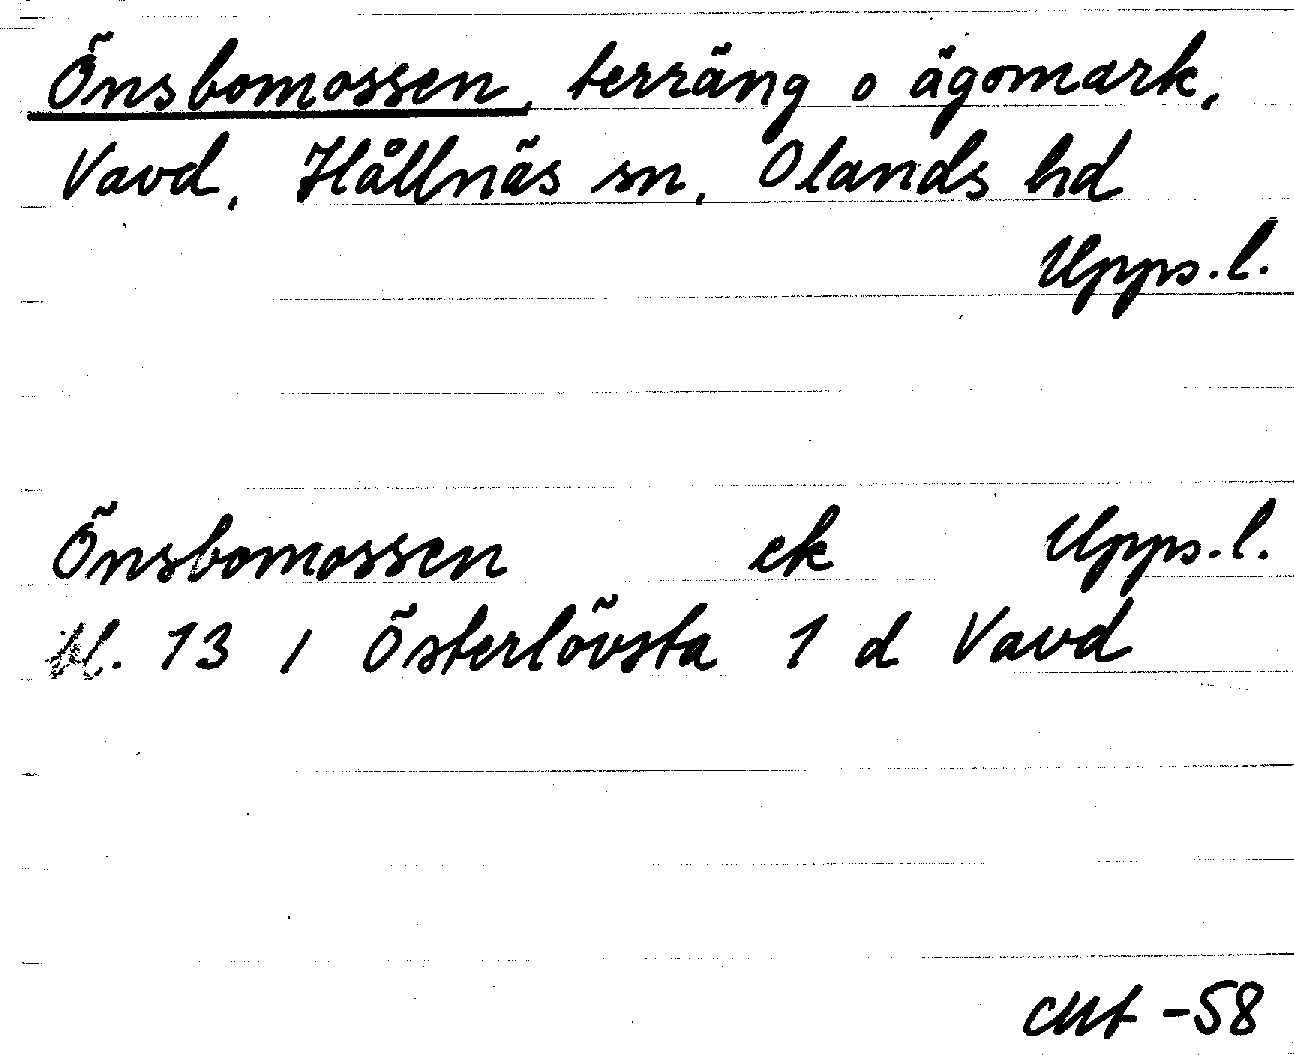 Önsbomossen, terräng o ägomark,
Vavd, Hållnäs sn, Olands hd
Upps.l.
Önsbomossen ek Upps.l.
bl. 13 / Österlövsta 1 d Vavd
-58